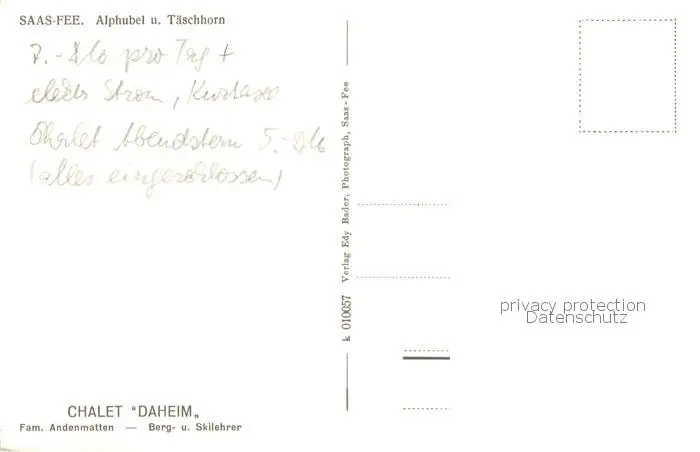 SAAS-FEE. Alphubel u. Täschhorn
7.- DM pro Tag +
elektr Strom, Kurtaxe
Chalet Abendstern 5.- DM
(alles eingeschlossen)
k 010057 Verlag Edy Bader, Photograph, Saas-Fee
privacy protection
Datenschutz
CHALET "DAHEIM„
Fam. Andenmatten — Berg- u. Skilehrer